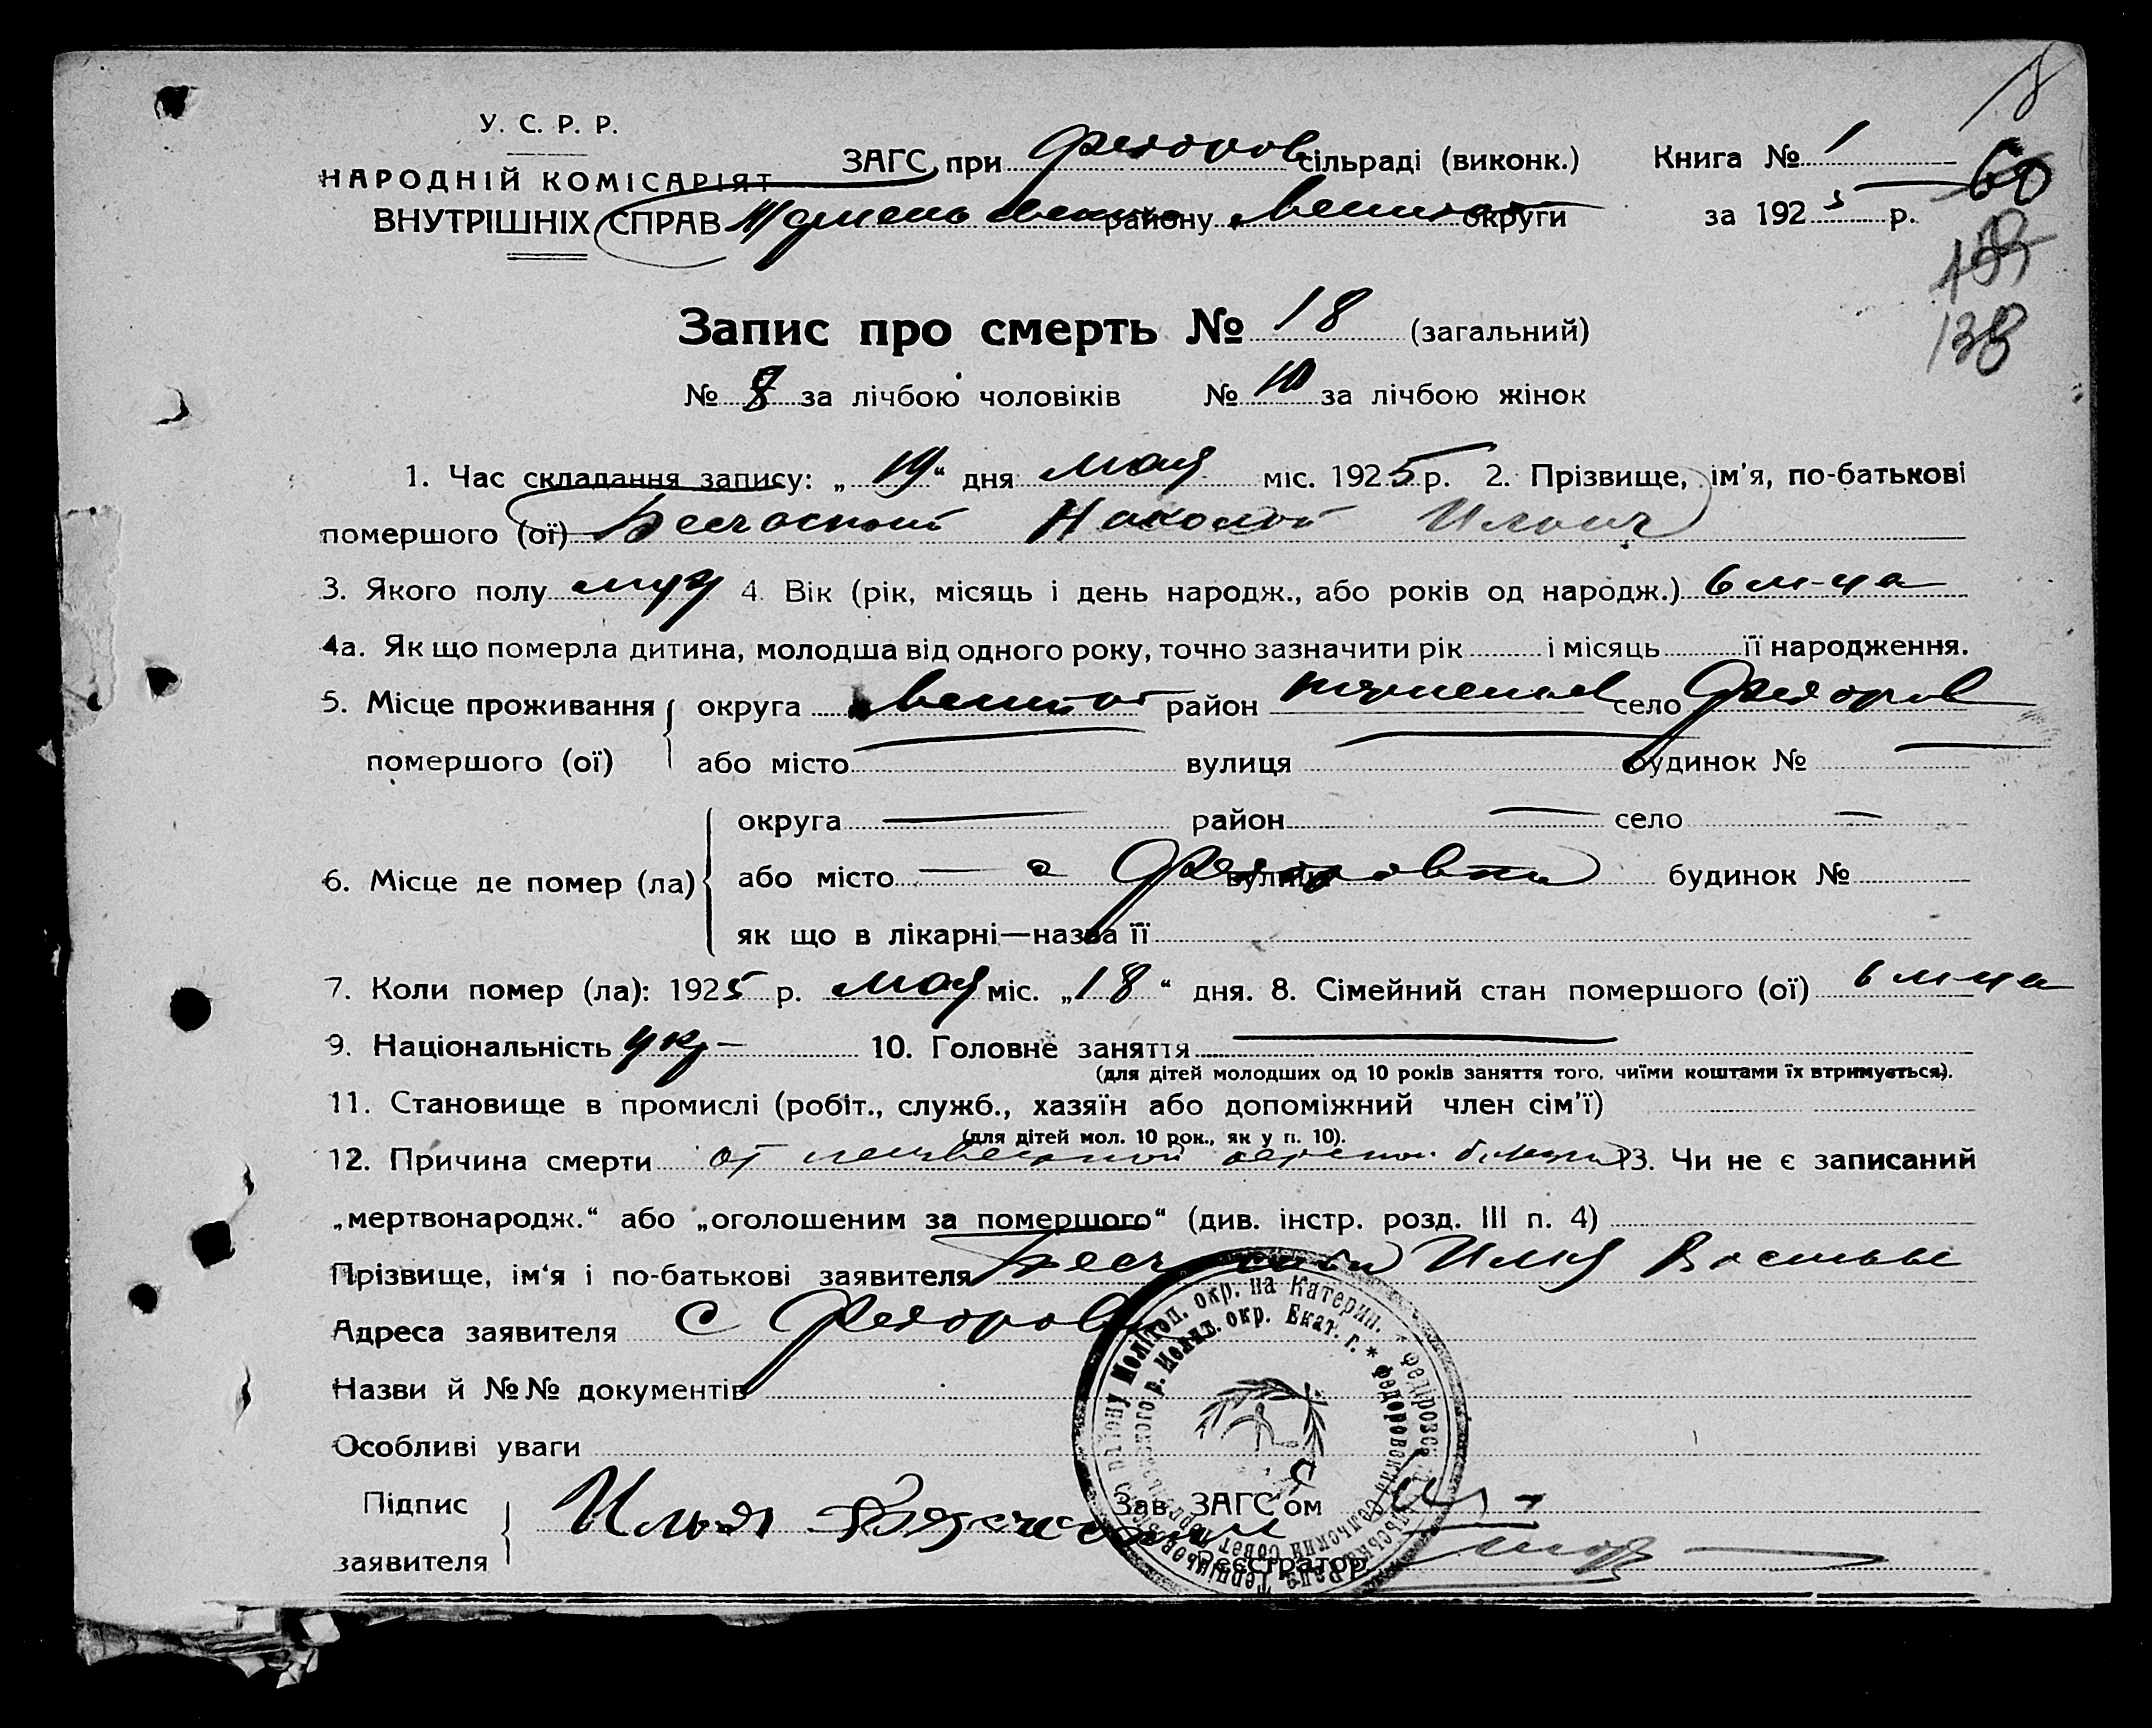 18
У. С. Р. Р.
НАРОДНІЙ КОМІСАРІЯТ
ВНУТРІШНІХ СПРАВ
ЗАГС при Федоров сільраді (виконк.) Книга № 1
району округи за 1925 р.
60
138
Запис про смерть № 18 (загальний)
№ 8 за лічбою чоловіків № 10 за лічбою жінок
1. Час складання запису: „19“ дня мая міс. 1925 р. 2. Прізвище, ім'я, по-батькові
помершого (ої) Бесчасный Николай Ильич
3. Якого полу муж 4. Вік (рік, місяць і день народж., або років од народж.) 6 м-ца
4а. Як що померла дитина, молодша від одного року, точно зазначити рік і місяць її народження.
5. Місце проживання округа район село Федоров
помершого (ої) або місто вулиця будинок №
округа район село
6. Місце де помер (ла) або місто с Федоровки вулиця будинок №
як що в лікарні—назва її
7. Коли помер (ла): 1925 р. мая міс. „18“ дня. 8. Сімейний стан помершого (ої) 6 м-ца
9. Національність укр 10. Головне заняття
(для дітей молодших од 10 років заняття того, чиїми коштами їх втримується).
11. Становище в промислі (робіт., служб., хазяїн або допоміжний член сім'ї)
(для дітей мол. 10 рок., як у п. 10).
12. Причина смерти от 13. Чи не є записаний
„мертвонародж.“ або „оголошеним за помершого“ (див. інстр. розд. III п. 4)
Прізвище, ім'я і по-батькові заявителя Илья Василье
Адреса заявителя с Федоровка
Назви й №№ документів
Особливі уваги
Підпис
заявителя
Илья
Зав. ЗАГС'ом
Реєстратор